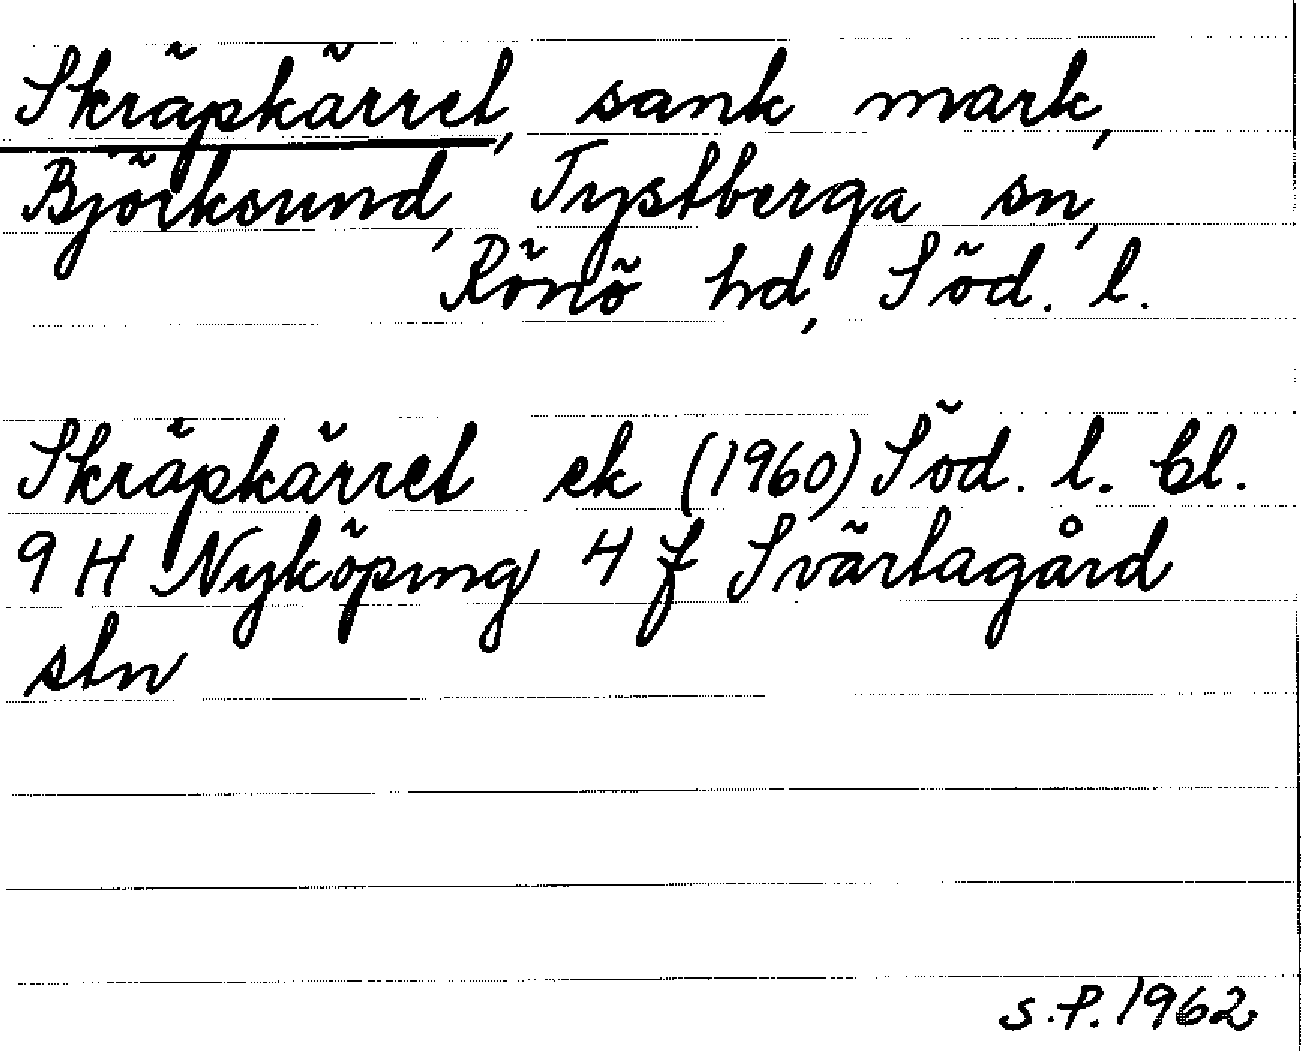 Skräpkärret, sank mark,
Björksund, Tystberga sn,
Rönö hd, Söd. l.
Skräpkärret ek (1960) Söd. l. bl.
9 H Nyköping 4 f Svärtagård
stn
S.P. 1962